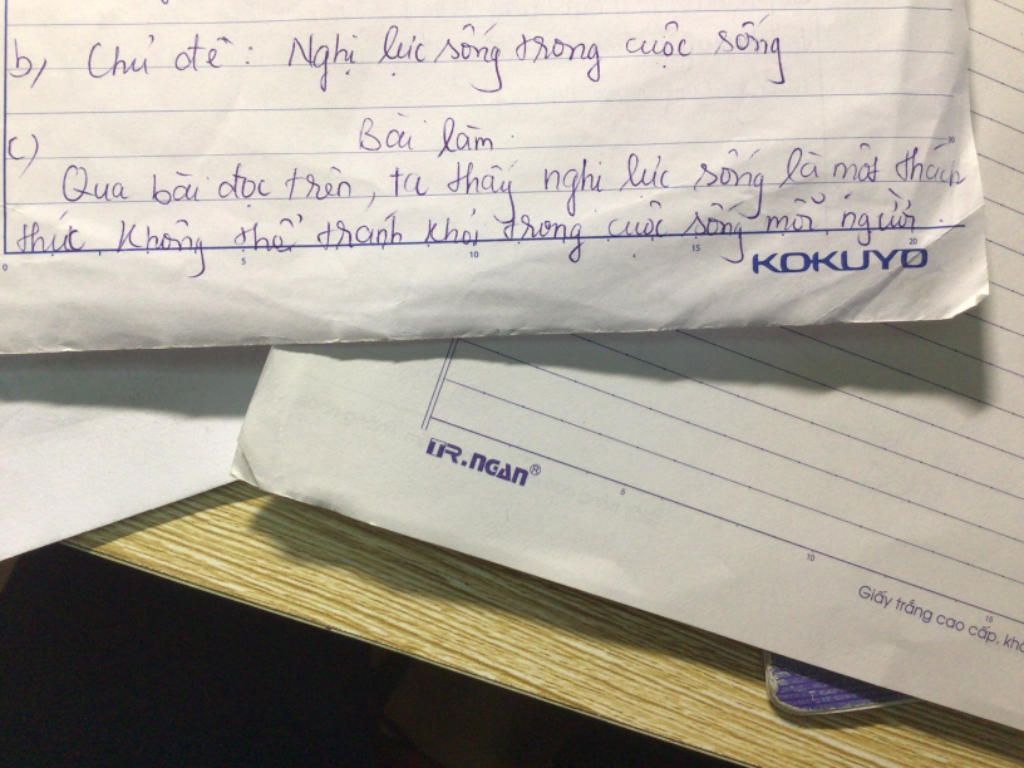 b, Chủ đề : Nghị lực sống trong cuộc sống
c) Bài làm.
Qua bài đọc trên, ta thấy nghị lực sống là một thách
thức không thể tránh khỏi trong cuộc sống mỗi người.
0 5 10 15 20
KOKUYO
TR.NGAN®
5 10 15
Giấy trắng cao cấp, khô